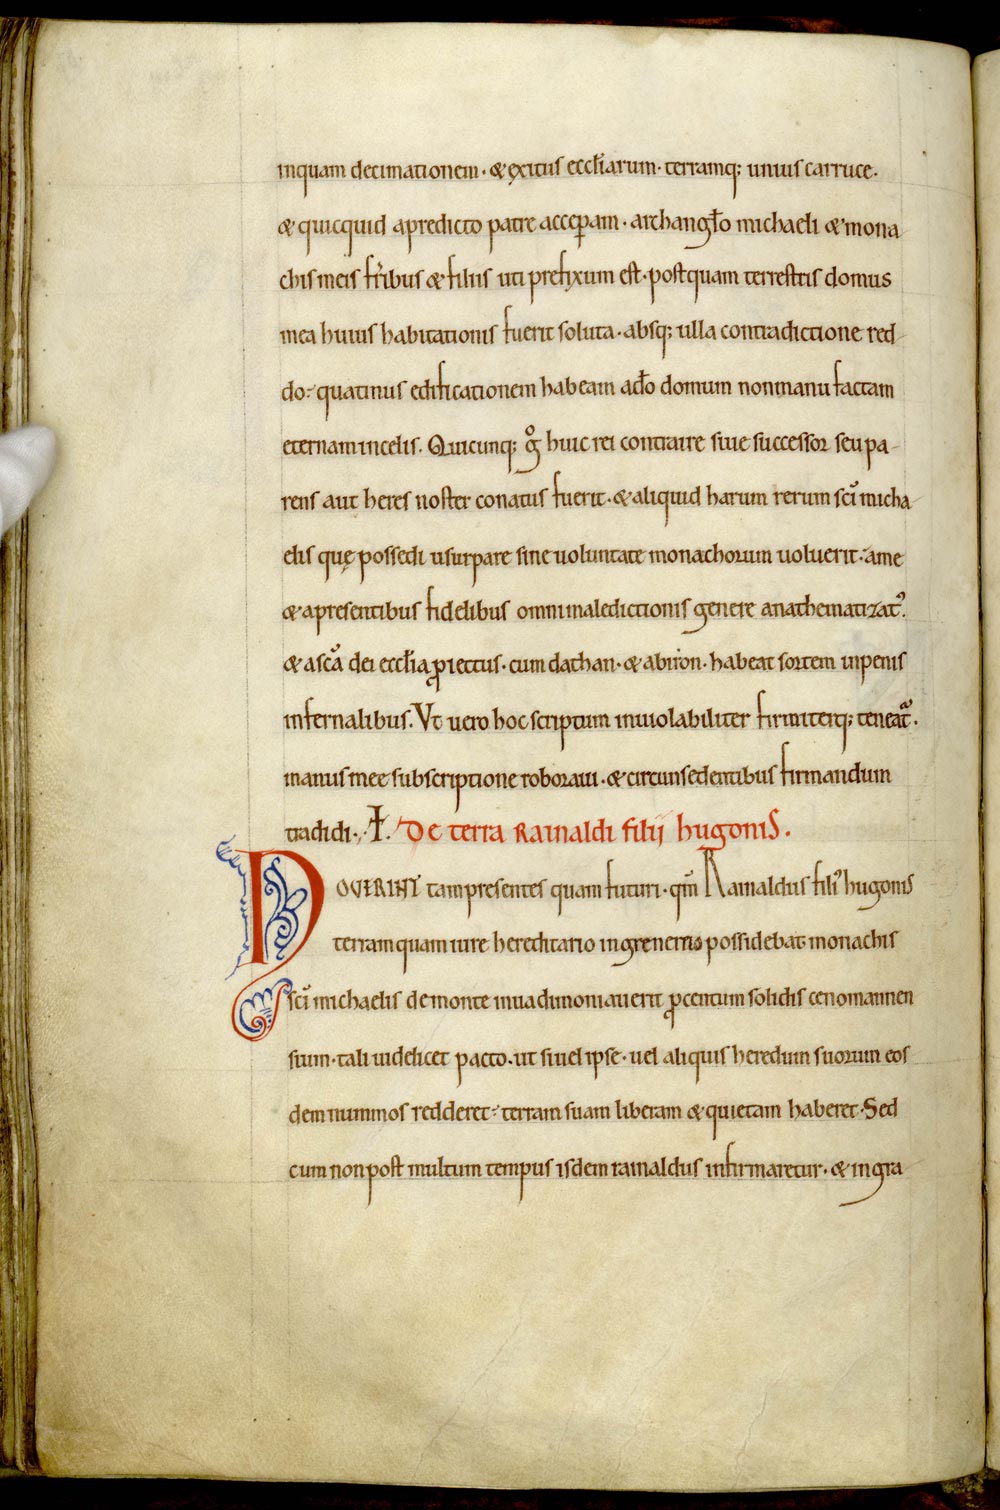 inquam decimationem · & exitus eccl̄iarum · terramq; unius carruce ·
& quicquid a predicto patre acceperam · archangl̄o michaeli & mona
chis meis fr̄ibus & filiis uti prefixum est · postquam terrestris domus
mea huius habitationis fuerit soluta · absq; ulla contradictione red-
do · quatinus edificationem habeam a dō domum non manu factam
eternam in celis. Quicunq; gͦ huic rei contraire siue successor seu pa-
rens aut heres noster conatus fuerit · & aliquid harum rerum scī micha
elis quę possedi usurpare sine uoluntate monachorum uoluerit · a me
& a presentibus fidelibus omni maledictionis genere anathematizat᷒
& a scā dei eccl̄ia ꝓiectus · cum dathan · & abiron · habeat sortem in penis
infernalibus. Vt uero hoc scriptum inuiolabiliter firmiterq; teneat᷒ ·
manus mee subscriptione roboraui · & circunsedentibus firmandum
tradidi · †. De terra Rainaldi filii hugonis.
NOVERINT tam presentes quam futuri · qm̄ Rainaldus fili᷒ hugonis
terram quam iure hereditario in grenerris possidebat monachis
scī michaelis de monte inuadimoniauerit ꝓ centum solidis cenomannen
sium · tali uidelicet pacto · ut si uel ipse · uel aliquis heredum suorum eos
dem nummos redderet · terram suam liberam & quietam haberet · Sed
cum non post multum tempus isdem rainaldus infirmaretur · & in gra